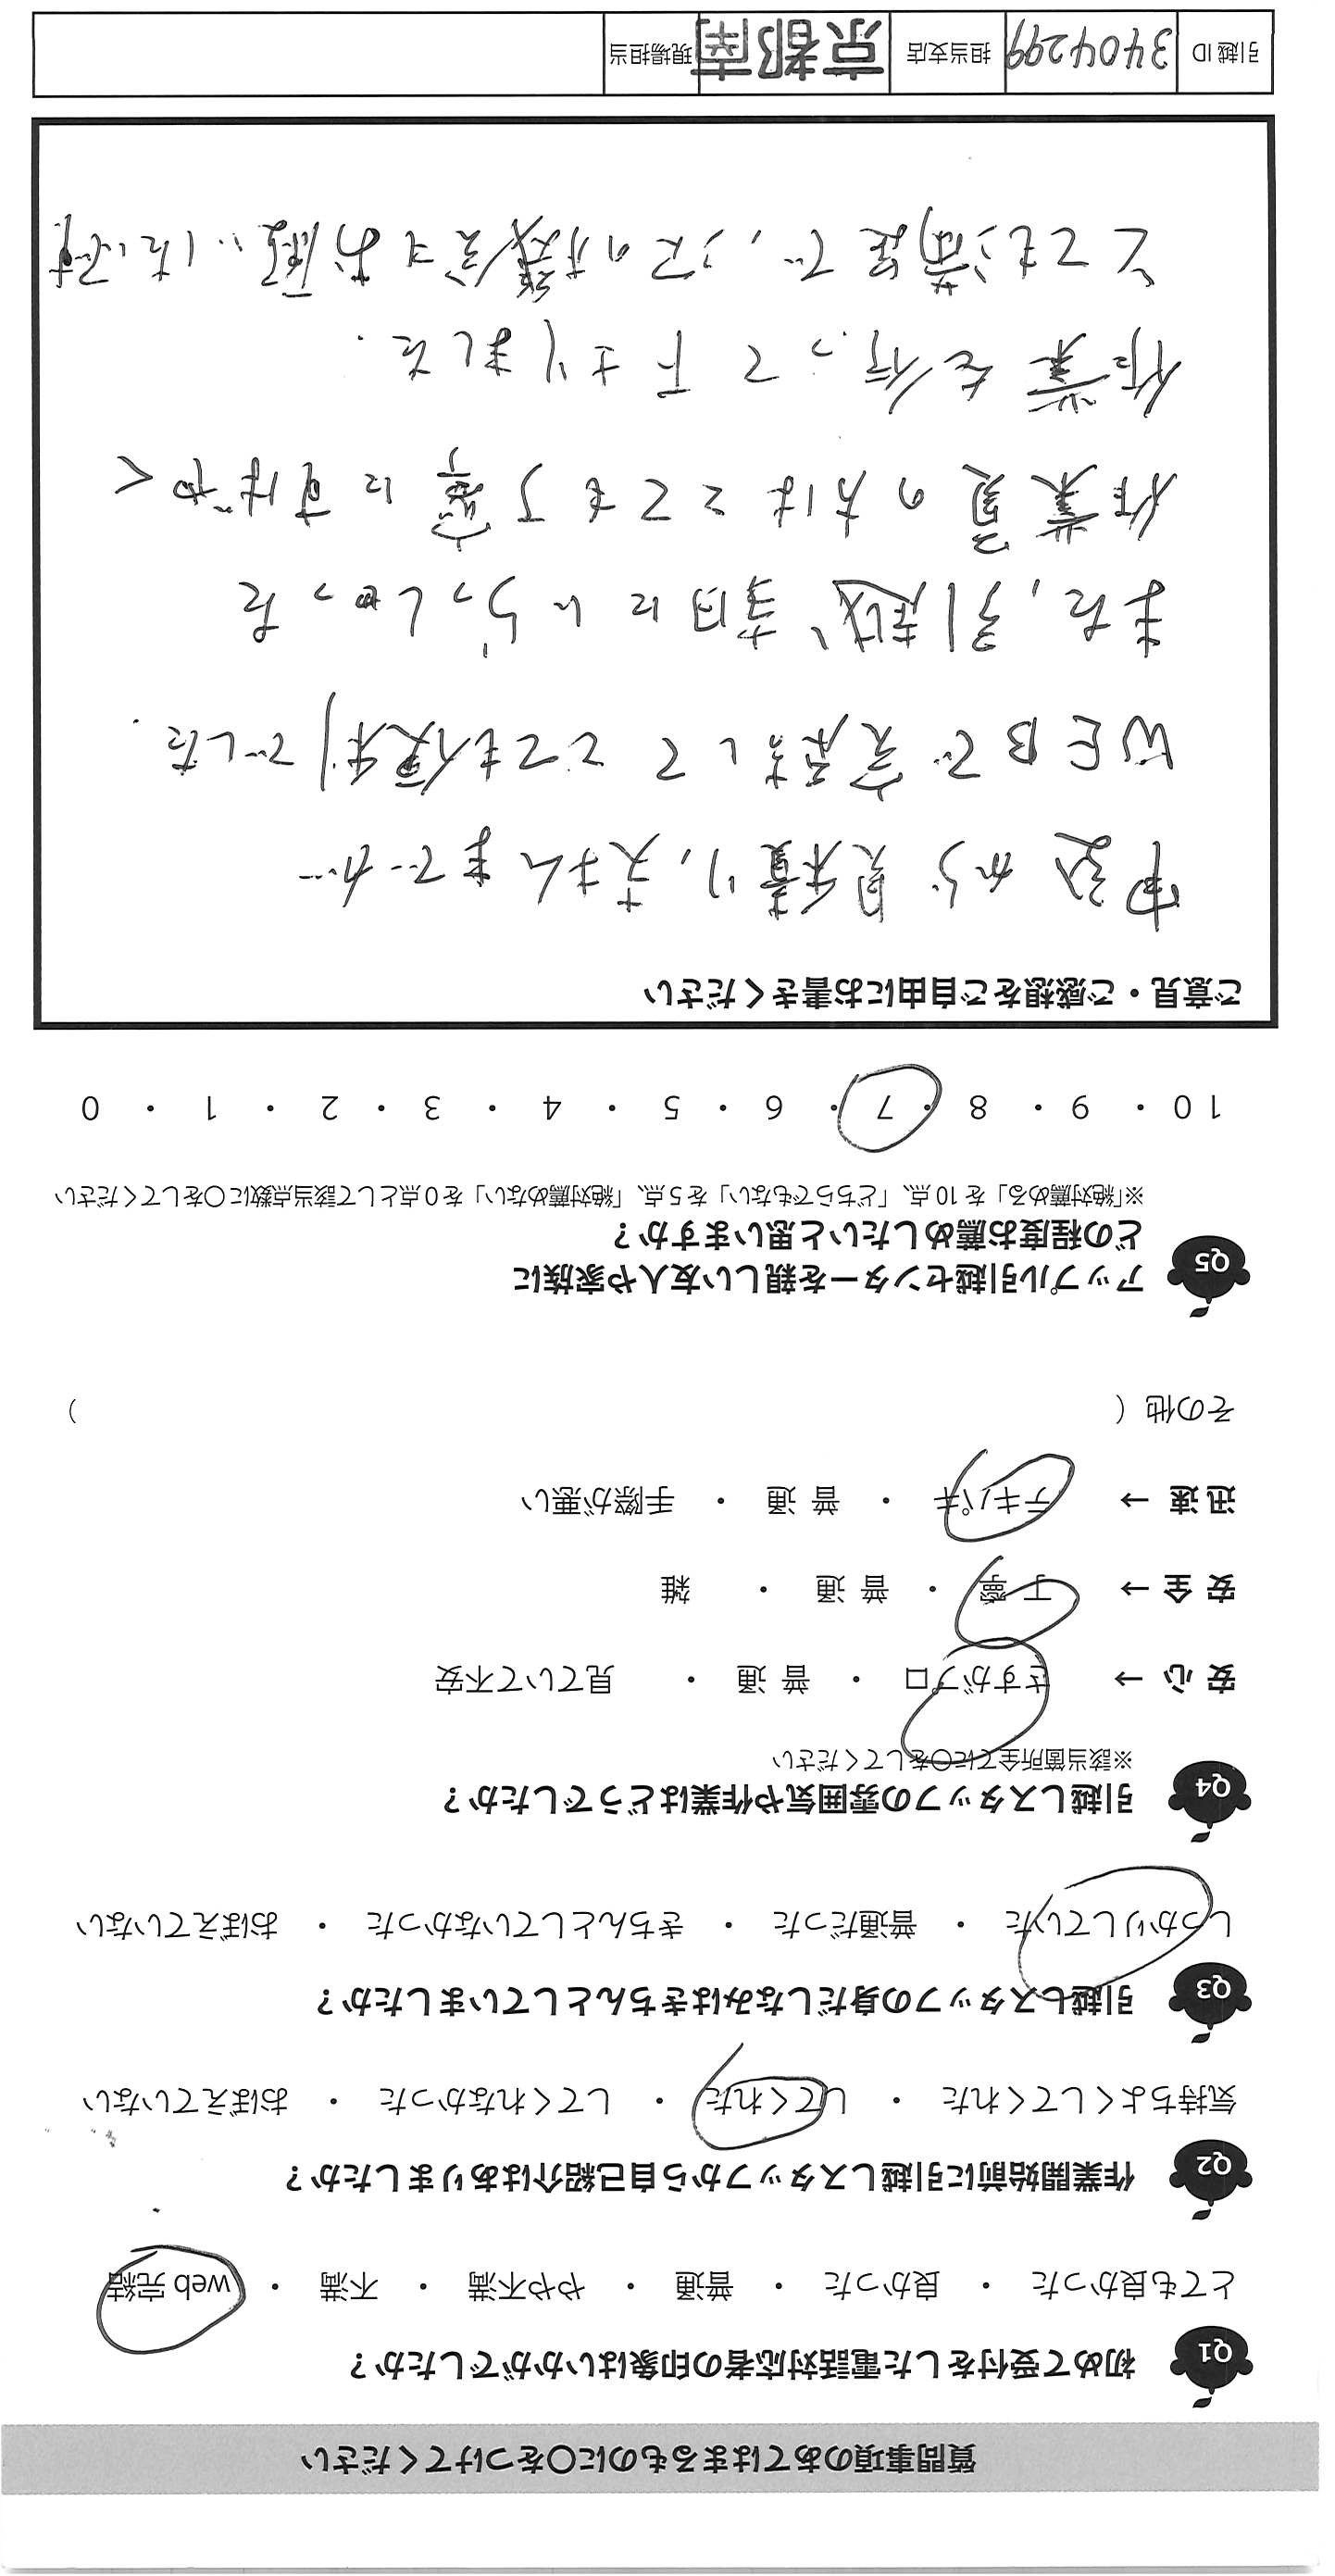 質問事項のあてはまるものに〇をつけてください
Q1 初めて受付をした電話対応者の印象はいかがでしたか？
とても良かった ・ 良かった ・ 普通 ・ やや不満 ・ 不満 ・ web 完結
Q2 作業開始前に引越しスタッフから自己紹介はありましたか？
気持ちよくしてくれた ・ してくれた ・ してくれなかった ・ おぼえていない
Q3 引越しスタッフの身だしなみはきちんとしていましたか？
しっかりしていた ・ 普通だった ・ きちんとしていなかった ・ おぼえていない
Q4 引越しスタッフの雰囲気や作業はどうでしたか？
※該当箇所全てに〇をしてください
安 心 → さすがプロ ・ 普 通 ・ 見ていて不安
安 全 → 丁 寧 ・ 普 通 ・ 雑
迅 速 → テキパキ ・ 普 通 ・ 手際が悪い
その他（ ）
Q5 アップル引越センターを親しい友人や家族に
どの程度お薦めしたいと思いますか？
※「絶対薦める」を 10 点、「どちらでもない」を 5 点、「絶対薦めない」を 0 点として該当点数に〇をしてください
10 ・ 9 ・ 8 ・ 7 ・ 6 ・ 5 ・ 4 ・ 3 ・ 2 ・ 1 ・ 0
ご意見・ご感想をご自由にお書きください
申込から見積り、支払までが
WEBで完結してとても便利でした.
また、引越当日にいらっしゃった
作業員の方はとても丁寧にすばやく
作業を行って下さりました.
とても満足で、次の機会もお願いしたいです
引越 ID 3404299 担当支店 京都南 現場担当